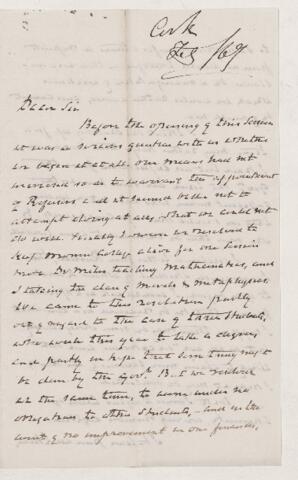 Cork
Feb /69
Dear Sir
Before the opening of this Session
it was a serious question with us whether
we began at all. Our means had not
increased so as to warrant the appointment
of Professors and it seemed better not to
attempt doing at all what we could not
do well. Finally however we resolved to
keep Mromm College alive for one Session
more Dr Miles teaching Mathematics, and
I taking the class of Morals & Metaphysics.
We came to this resolution partly
out of regard to the case of three Students,
who wish this year to take a degree,
and partly in hope that something might
be done by the Govt. But we resolved
at the same time, to come under no
obligations to other Students, and in the
event of no improvement in our finances,